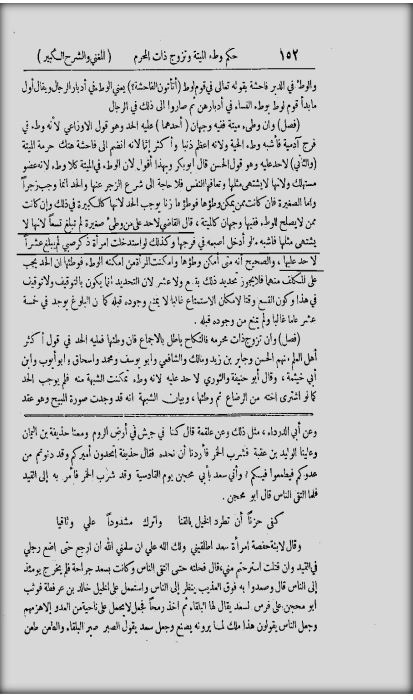 ١٥٢ حكم وطء الميتة وتزوج ذات المحرم (المغني والشرح الكبير)
والوطء في الدبر فاحشة بقوله تعالى في قوم لوط (أتأتون الفاحشة؟) يعني الوطء في أدبار الرجال ويقال أول
ما بدأ قوم لوط بوطء النساء في أدبارهن ثم صاروا الى ذلك في الرجال
(فصل) وان وطىء ميتة ففيه وجهان (أحدهما) عليه الحد وهو قول الاوزاعي لأنه وطء في
فرج آدمية فأشبه وطء الحية ولانه أعظم ذنباً وأكثر إثما لانه انضم الى فاحشة هتك حرمة الميتة
(والثاني) لا حد عليه وهو قول الحسن قال أبو بكر وبهذا أقول لان الوطء في الميتة كلا وطء لانه عضو
مستهلك ولانها لا يشتهى مثلها وتعافه النفس فلا حاجة الى شرع الزجر عنها والحد انما وجب زجراً
وأما الصغيرة فان كانت ممن يمكن وطؤها فوطؤها زنا يوجب الحد لانها كالكبيرة في ذلك وإن كانت
ممن لا يصلح للوطء ففيها وجهان كالميتة، قال القاضي لا حد على من وطىء صغيرة لم تبلغ تسعاً لانها لا
يشتهى مثلها فاشبه مالو أدخل أصبعه في فرجها وكذلك لو استدخلت امرأة ذكر صبي لم يبلغ عشراً
لا حد عليها، والصحيح أنه متى أمكن وطؤها وامكنت المرأة من امكنه الوطء فوطئها ان الحد يجب
على المكلف منهما فلا يجوز تحديد ذلك بتسع ولا عشر لان التحديد انما يكون بالتوقيف ولا توقيف
في هذا وكون التسع وقتا لامكان الاستمتاع غالبا لا يمنع وجوده قبله كما أن البلوغ يوجد في خمسة
عشر عاما غالبا ولم يمنع من وجوده قبله.
(فصل) وان تزوج ذات محرمه فالنكاح باطل بالاجماع فان وطئها فعليه الحد في قول أكثر
أهل العلم. منهم الحسن وجابر بن زيد ومالك والشافعي وأبو يوسف ومحمد واسحاق وأبو أيوب وابن
أبي خيثمة، وقال أبو حنيفة والثوري لا حد عليه لانه وطء تمكنت الشبهة منه فلم يوجب الحد
كما لو اشترى اخته من الرضاع ثم وطئها، وبيان الشبهة انه قد وجدت صورة المبيح وهو عقد
وعن أبي الدرداء، مثل ذلك وعن علقمة قال كنا في جيش في أرض الروم ومعنا حذيفة بن اليمان
وعلينا الوليد بن عقبة فشرب الخمر فأردنا أن نحده فقال حذيفة أتحدون أميركم وقد دنوتم من
عدوكم فيطمعوا فيكم؟ وأتي سعد بأبي محجن يوم القادسية وقد شرب الخمر فأمر به إلى القيد
فلما التقى الناس قال أبو محجن.
كفى حزناً أن تطرد الخيل بالقنا وأترك مشدوداً علي وثاقيا
وقال لابنة حفصة امرأة سعد اطلقيني ولك الله علي ان سلمني الله ان ارجع حتى اضع رجلي
في القيد وان قتلت استرحتم مني، قال فحلته حتى التقى الناس وكانت بسعد جراحة فلم يخرج يومئذ
إلى الناس قال وصعدوا به فوق العذيب ينظر إلى الناس واستعمل على الخيل خالد بن عرفطة فوثب
أبو محجن على فرس لسعد يقال لها البلقاء ثم اخذ رمحاً فجعل لا يحمل على ناحية من العدو إلا هزمهم
وجعل الناس يقولون هذا ملك لما يرونه يصنع وجعل سعد يقول الصبر صبر البلقاء والطعن طعن